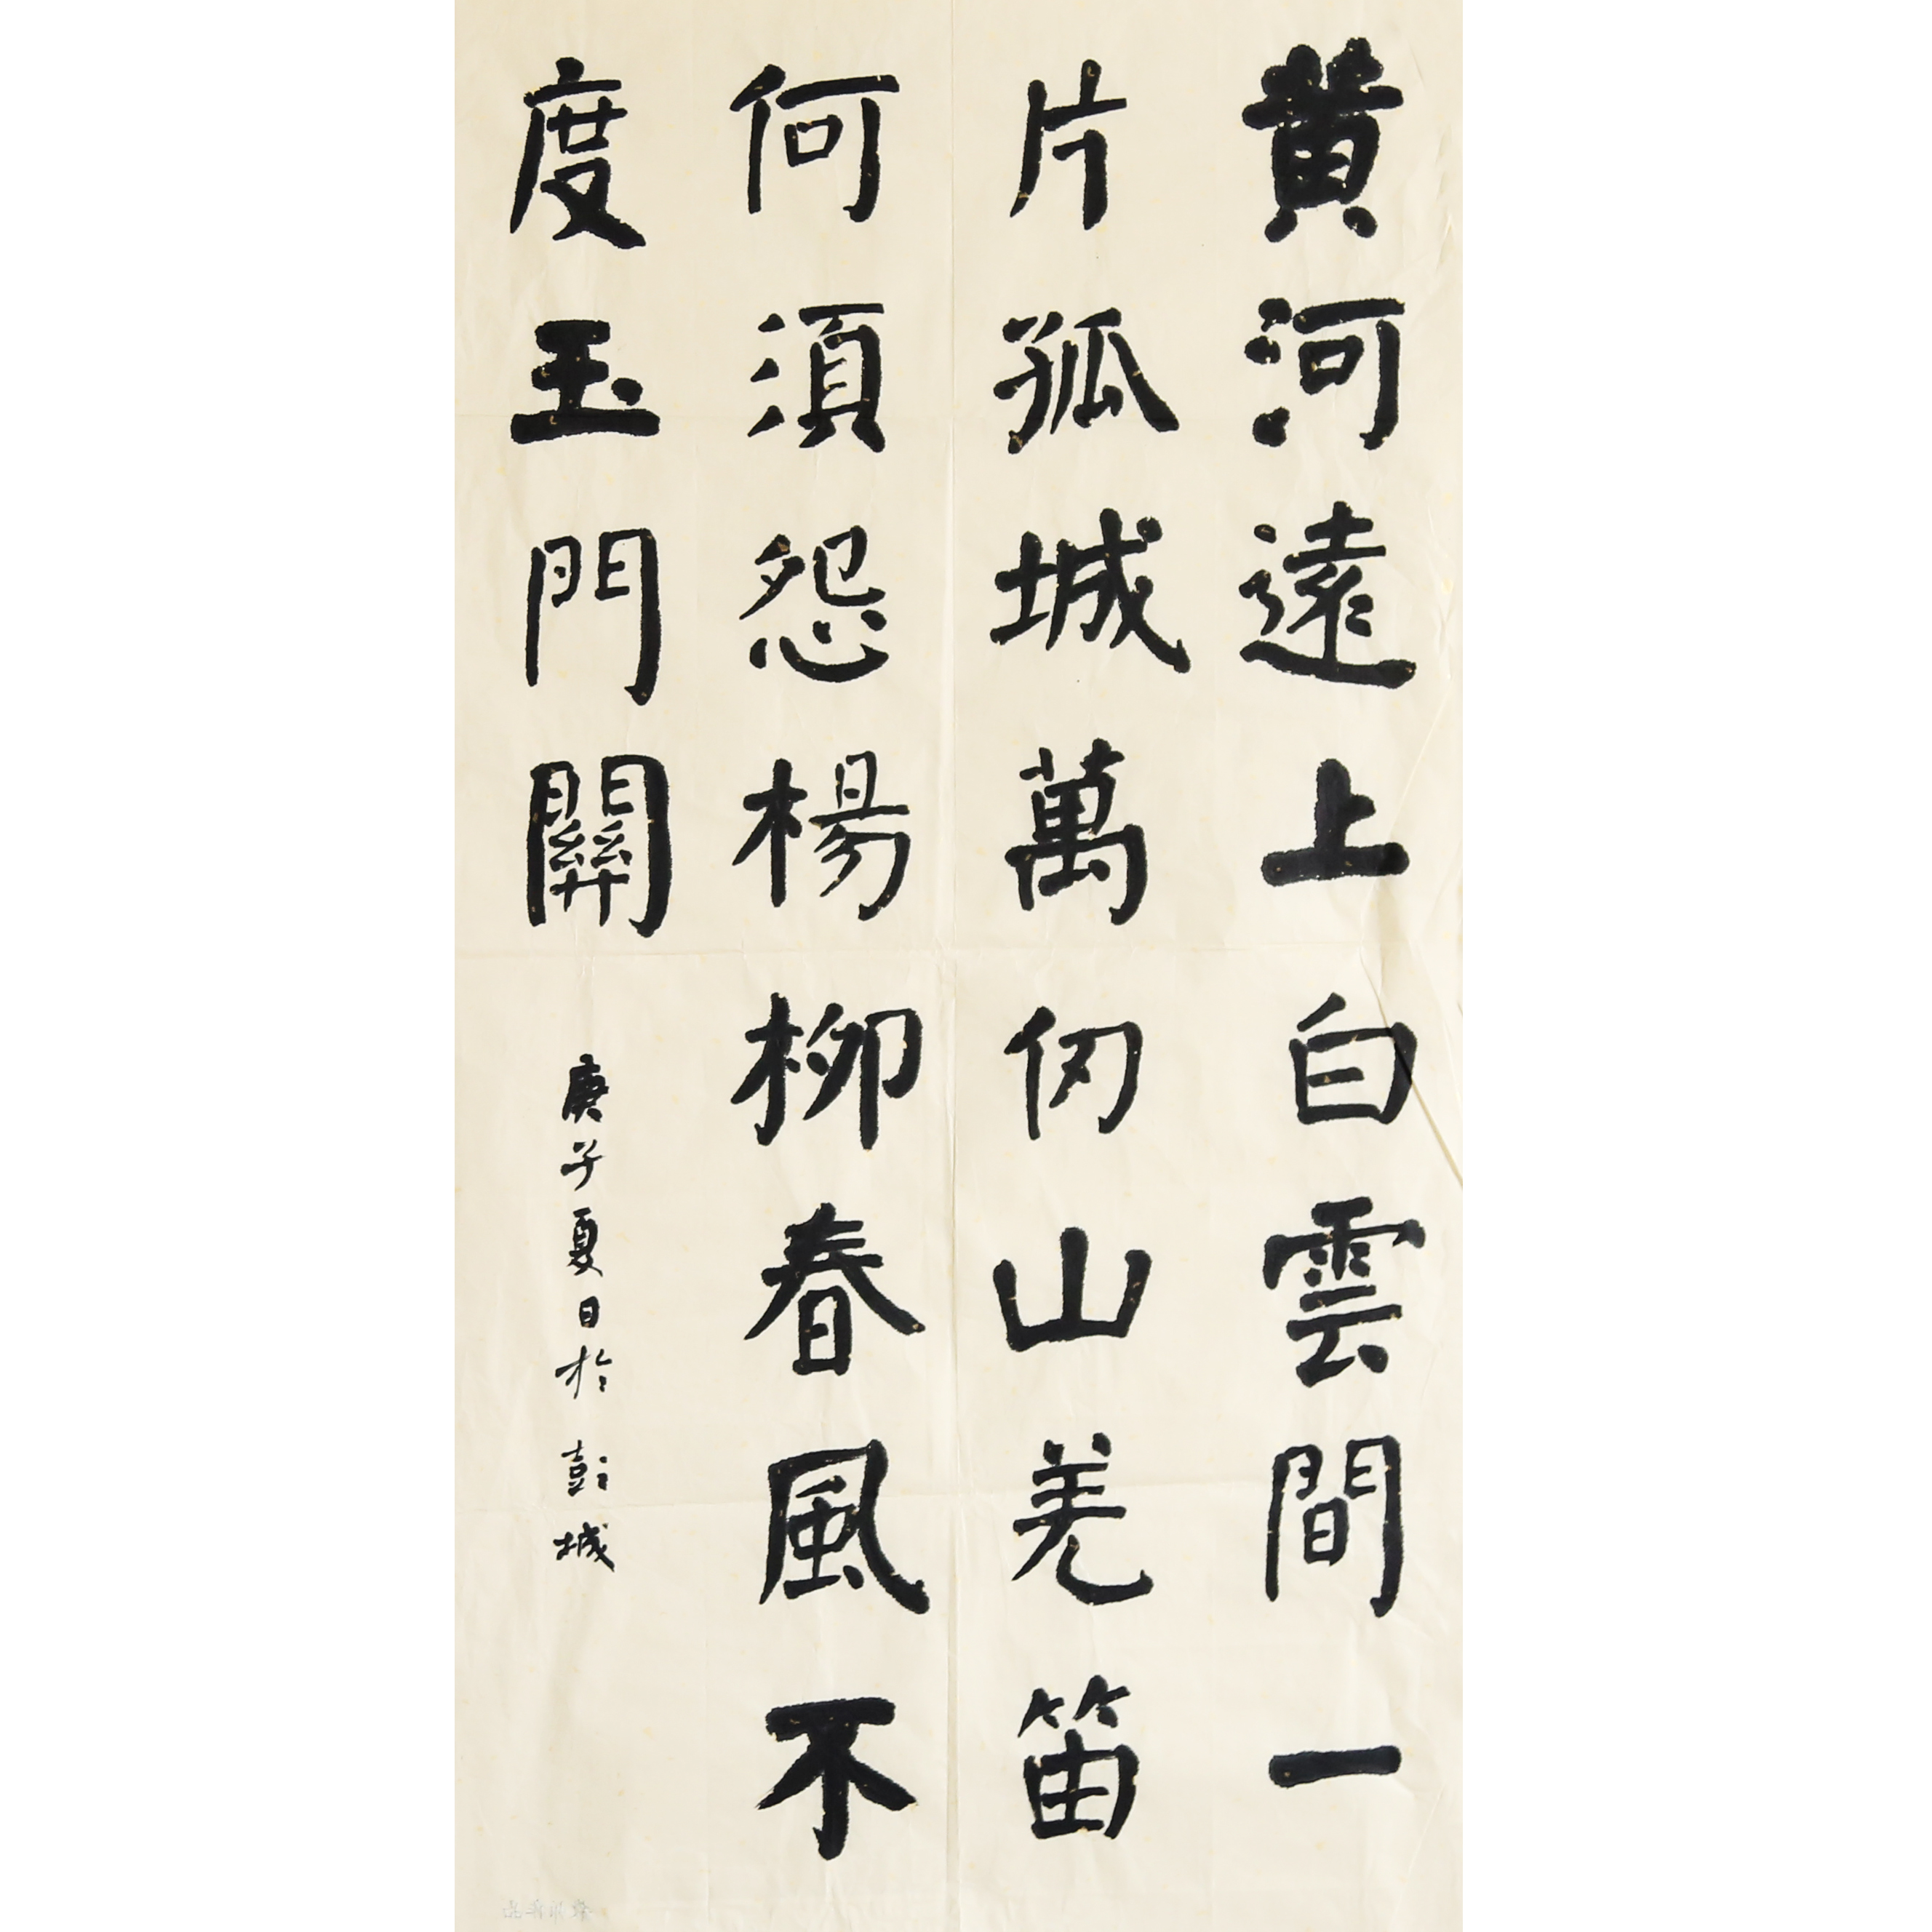 黄河遠上白雲間一
片孤城萬仞山羌笛
何須怨楊柳春風不
度玉門關
庚子夏日於彭城